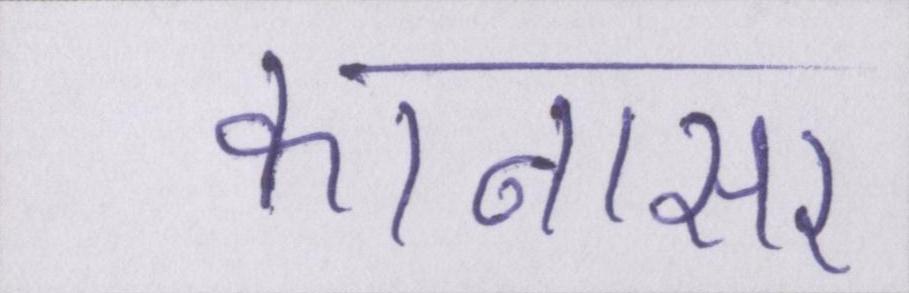 कानासर